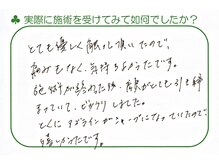 実際に施術を受けてみて如何でしたか?
とても優しく触って頂いたので、
痛みもなく、気持ちよかったです。
施術が終わった後、腰がとても引き締
まっていて、ビックリしました。
とくにアゴラインがシャープになっていたので、
嬉しかったです。